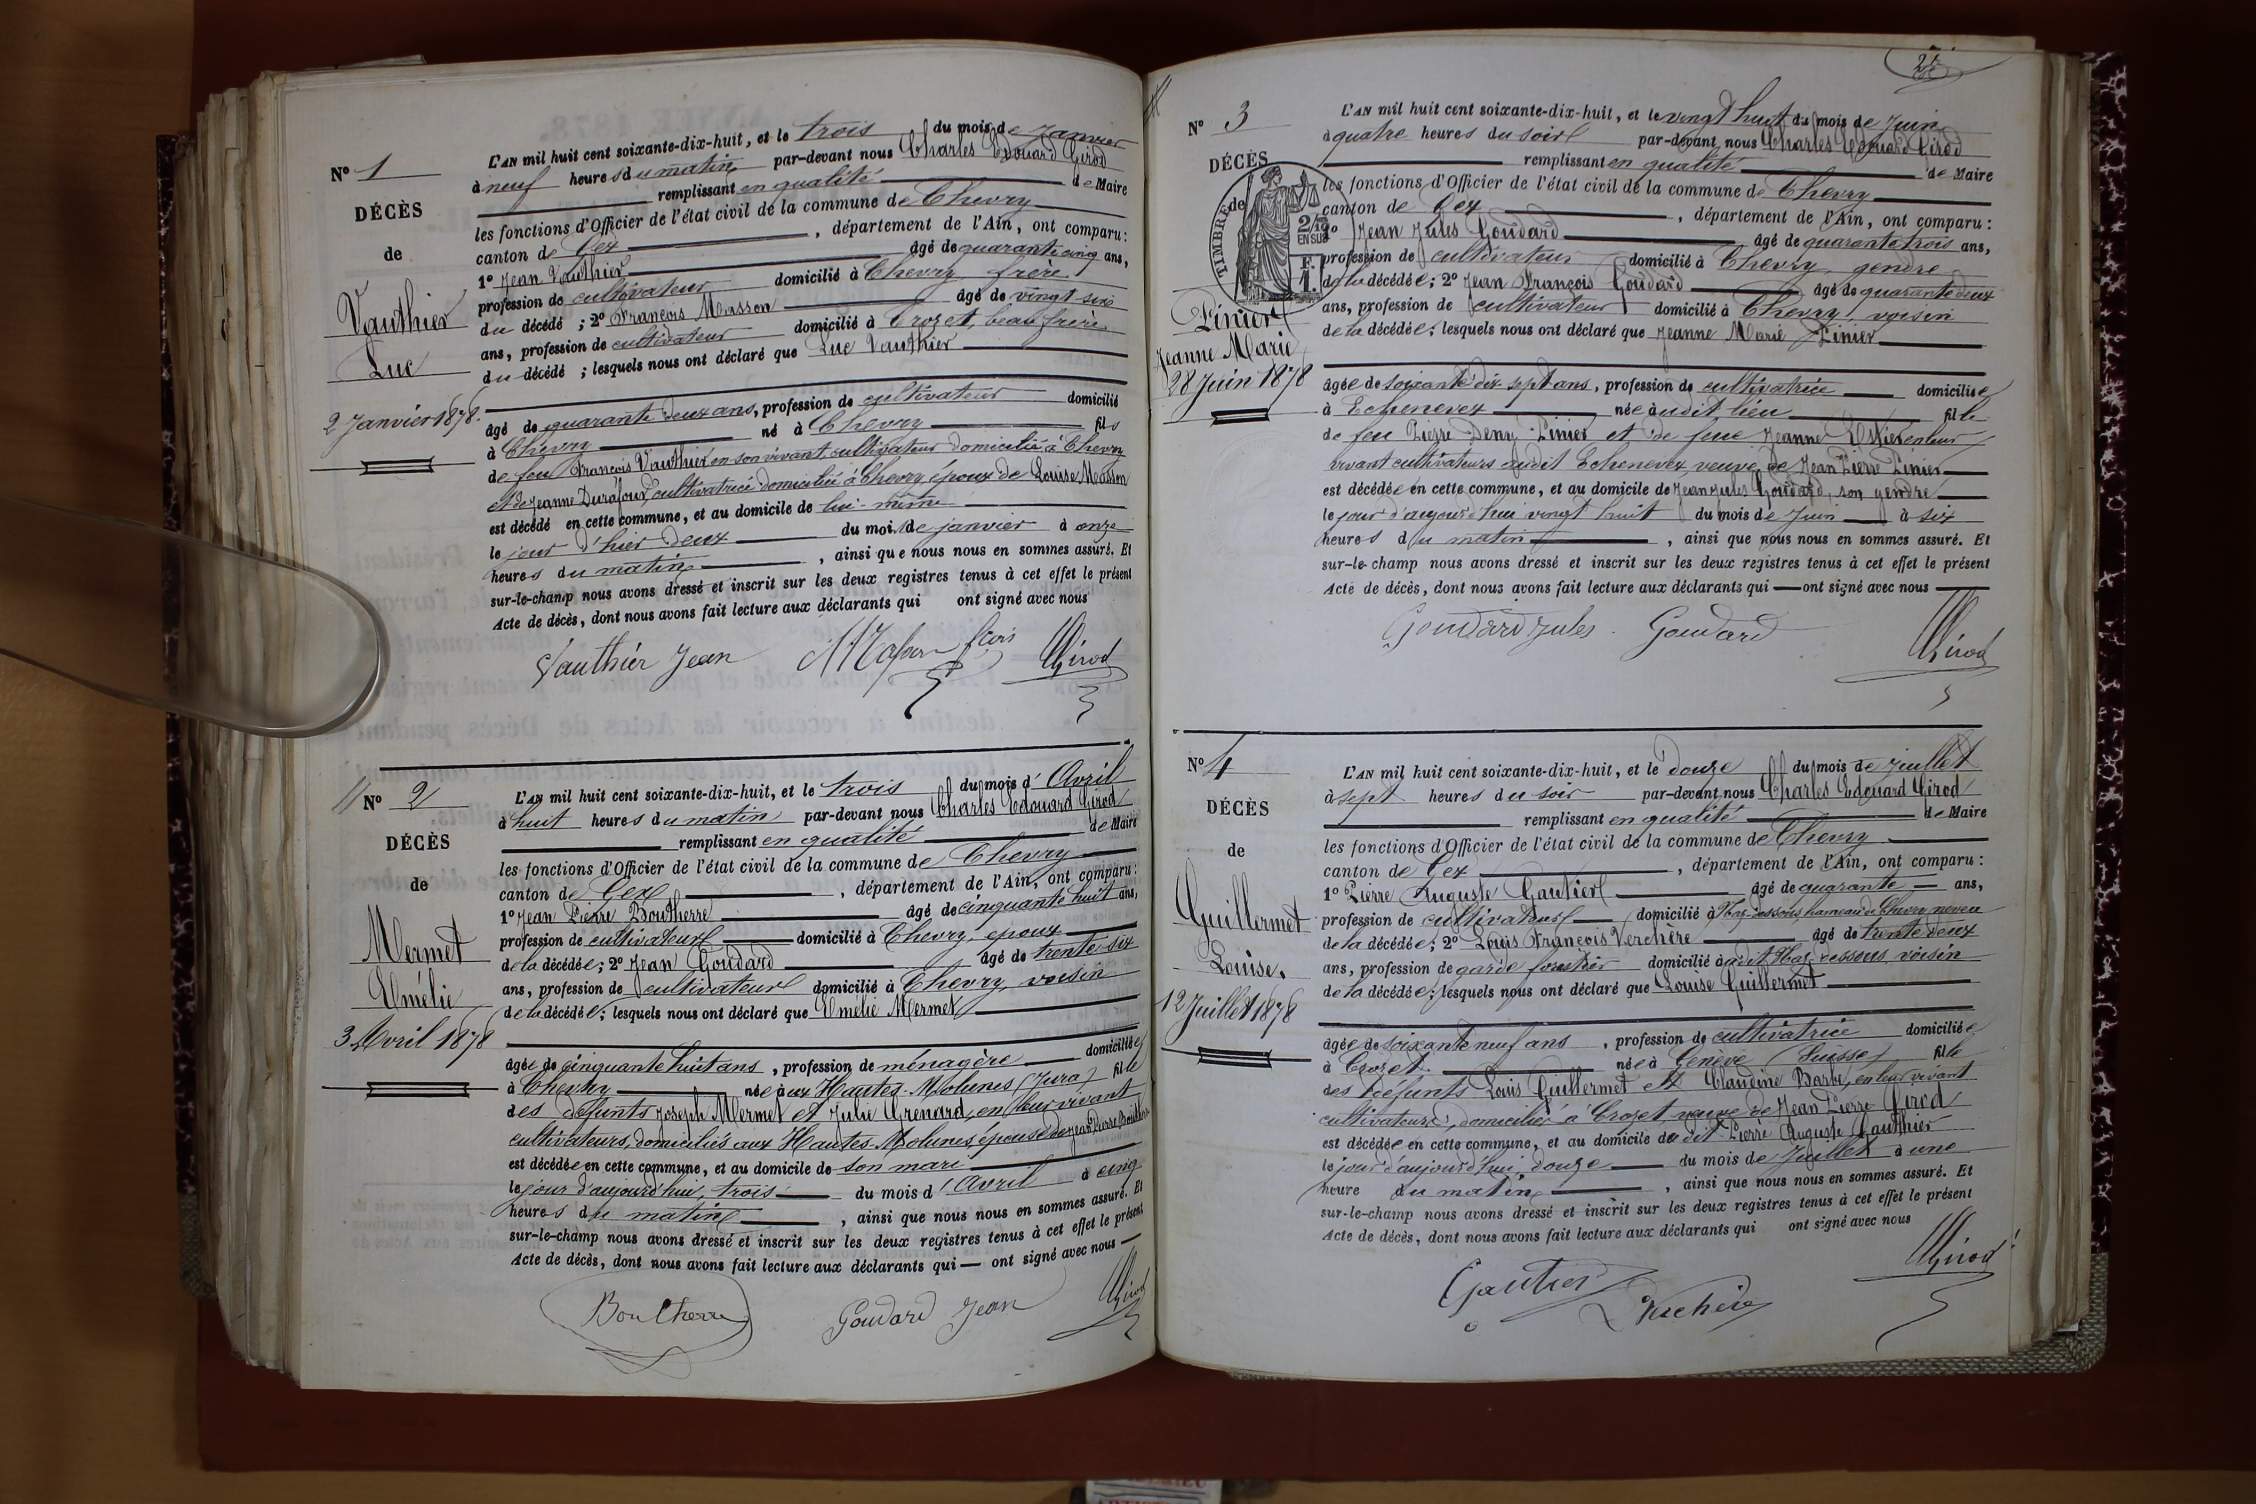 N° 1
DÉCÈS
de
Vauthier
Luc
2 Janvier 1878.
L'AN mil huit cent soixante-dix-huit, et le trois du mois de Janvier
à neuf heures du matin par-devant nous Charles Edouard Girod
remplissant en qualité de Maire
les fonctions d'Officier de l'état civil de la commune de Chevry
canton de Gex, département de l'Ain, ont comparu:
1° Jean Vauthier âgé de quarante cinq ans,
profession de cultivateur domicilié à Chevry, frère
du décédé; 2° François Masson âgé de vingt six
ans, profession de cultivateur domicilié à Crozet, beau frère
du décédé; lesquels nous ont déclaré que Luc Vauthier
âgé de quarante deux ans, profession de cultivateur domicilié
à Chevry né à Chevry fils
de feu François Vauthier en son vivant cultivateur domicilié à Chevry
et de Jeanne Durafour, cultivatrice domiciliée à Chevry, époux de Louise Masson
est décédé en cette commune, et au domicile de lui-même
le jour d'hier deux du mois de janvier à onze
heures du matin, ainsi que nous nous en sommes assuré. Et
sur-le-champ nous avons dressé et inscrit sur les deux registres tenus à cet effet le présent
Acte de décès, dont nous avons fait lecture aux déclarants qui ont signé avec nous
Vauthier Jean Masson fcois Girod
N° 2
DÉCÈS
de
Mermet
Emélie
3 Avril 1878
L'AN mil huit cent soixante-dix-huit, et le trois du mois d'Avril
à huit heures du matin par-devant nous Charles Edouard Girod
remplissant en qualité de Maire
les fonctions d'Officier de l'état civil de la commune de Chevry
canton de Gex, département de l'Ain, ont comparu:
1° Jean Pierre Boutherre âgé de cinquante huit ans,
profession de cultivateur domicilié à Chevry, époux
de la décédée; 2° Jean Goudard âgé de trente-six
ans, profession de cultivateur domicilié à Chevry, voisin
de la décédée; lesquels nous ont déclaré que Emélie Mermet
âgée de cinquante huit ans, profession de ménagère domiciliée
à Chevry née aux Hautes-Molunes (Jura) fille
des défunts Joseph Mermet et Julie Grenard, en leur vivant
cultivateurs, domiciliés aux Hautes-Molunes épouse de Jean Pierre Boutherre
est décédée en cette commune, et au domicile de son mari
le jour d'aujourd'hui, trois du mois d'Avril à cinq
heures du matin, ainsi que nous nous en sommes assuré. Et
sur-le-champ nous avons dressé et inscrit sur les deux registres tenus à cet effet le présent
Acte de décès, dont nous avons fait lecture aux déclarants qui ont signé avec nous
Boutherre Goudard Jean Girod
N° 3
DÉCÈS
de
TIMBRE
2/10
EN SUS
Pinier
Jeanne Marie
28 Juin 1878
L'AN mil huit cent soixante-dix-huit, et le vingt huit du mois de Juin
à quatre heures du soir par-devant nous Charles Edouard Girod
remplissant en qualité de Maire
les fonctions d'Officier de l'état civil de la commune de Chevry
canton de Gex, département de l'Ain, ont comparu:
1° Jean Jules Goudard âgé de quarante trois ans,
profession de cultivateur domicilié à Chevry, gendre
de la décédée; 2° Jean François Goudard âgé de quarante deux
ans, profession de cultivateur domicilié à Chevry, voisin
de la décédée; lesquels nous ont déclaré que Jeanne Marie Pinier
âgée de soixante dix sept ans, profession de cultivatrice domiciliée
à Echenevex née audit lieu fille
de feu Pierre Deny Pinier et de feue Jeanne en leur
vivant cultivateurs audit Echenevex veuve de Jean Pierre Pinier
est décédée en cette commune, et au domicile de Jean Jules Goudard, son gendre
le jour d'aujourd'hui vingt huit du mois de Juin à six
heures du matin, ainsi que nous nous en sommes assuré. Et
sur-le-champ nous avons dressé et inscrit sur les deux registres tenus à cet effet le présent
Acte de décès, dont nous avons fait lecture aux déclarants qui ont signé avec nous
Goudard Jules. Goudard Girod
N° 4
DÉCÈS
de
Guillermet
Louise.
12 Juillet 1878
L'AN mil huit cent soixante-dix-huit, et le douze du mois de Juillet
à sept heures du soir par-devant nous Charles Edouard Girod
remplissant en qualité de Maire
les fonctions d'Officier de l'état civil de la commune de Chevry
canton de Gex, département de l'Ain, ont comparu:
1° Pierre Auguste Gautier âgé de quarante ans,
profession de cultivateur domicilié à hameau de Chevry neveu
de la décédée; 2° Louis François Verchère âgé de trente deux
ans, profession de garde forestier domicilié audit voisin
de la décédée; lesquels nous ont déclaré que Louise Guillermet
âgée de soixante neuf ans, profession de cultivatrice domiciliée
à Crozet née à Genève (Suisse) fille
des défunts Louis Guillermet et Claudine Barbé, en leur vivant
cultivateurs, domiciliés à Crozet, veuve de Jean Pierre Girod
est décédée en cette commune, et au domicile du dit Pierre Auguste Gauthier
le jour d'aujourd'hui, douze du mois de Juillet à une
heure du matin, ainsi que nous nous en sommes assuré. Et
sur-le-champ nous avons dressé et inscrit sur les deux registres tenus à cet effet le présent
Acte de décès, dont nous avons fait lecture aux déclarants qui ont signé avec nous
Gautier Verchère Girod